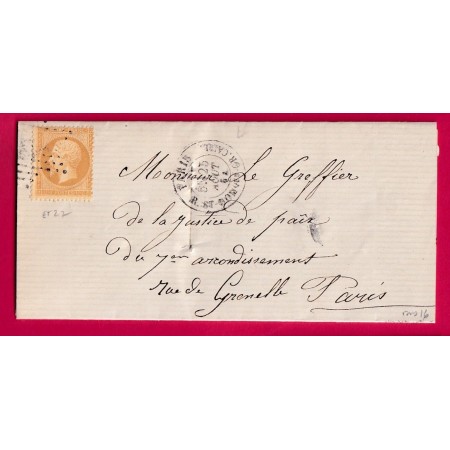 Monsieur Le Greffier
de la Justice de paix
du 7eme arrondissement
rue de Grenelle Paris
PARIS
R. ST-DOM